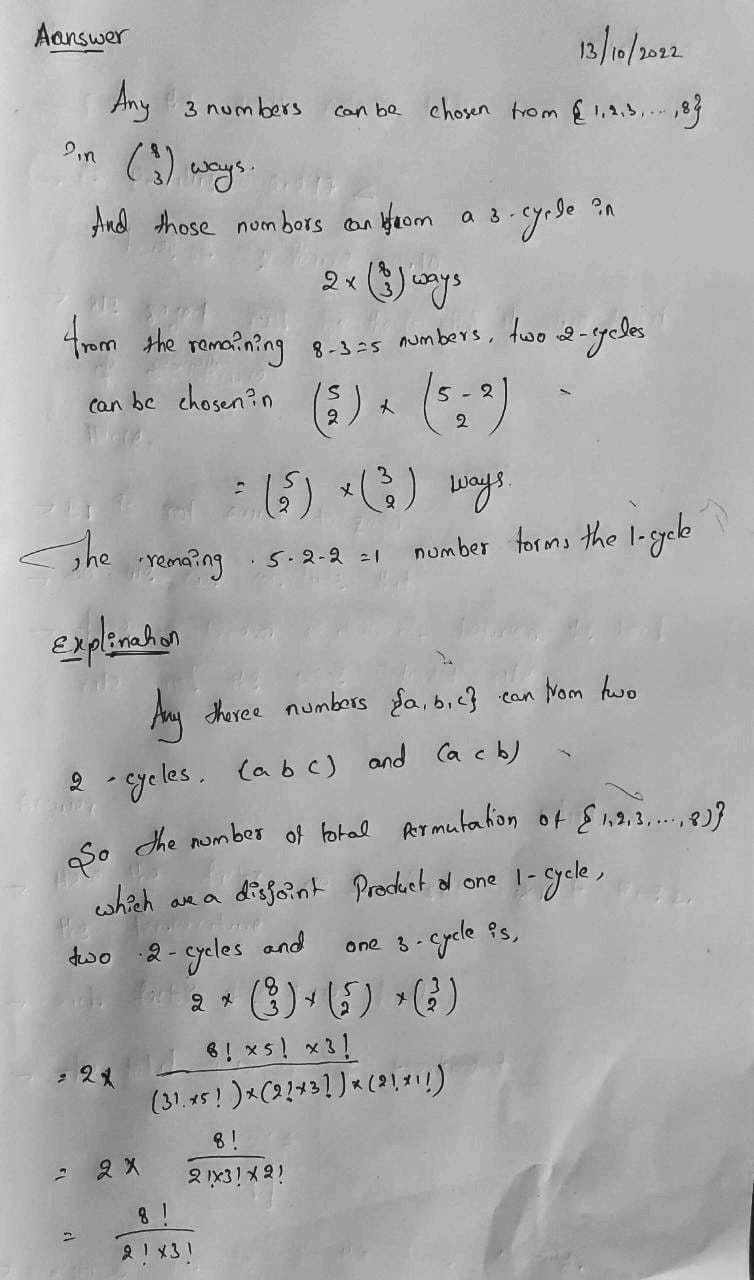 Aanswer
13/10/2022
Any 3 numbers can be chosen from { 1,2,3,...,8}
in (8 3) ways.
And those numbers can from a 3-cycle in
2 x (8 3) ways
from the remaining 8-3=5 numbers, two 2-cycles
can be chosen in (5 2) x (5-2 2)
= (5 2) x (3 2) ways.
The remaing 5-2-2=1 number forms the 1-cycle
Explination
Any theree numbers {a,b,c} can from two
2-cycles. (a b c) and (a c b)
So the number of total Permutation of { 1,2,3,...,8)}
which are a disjoint Product of one 1-cycle,
two 2-cycles and one 3-cycle is,
2 x (8 3) x (5 2) x (3 2)
= 2 x 8! x 5! x 3! / (3! x 5!) x (2! x 3!) x (2! x 1!)
= 2 x 8! / 2! x 3! x 2!
= 8! / 2! x 3!